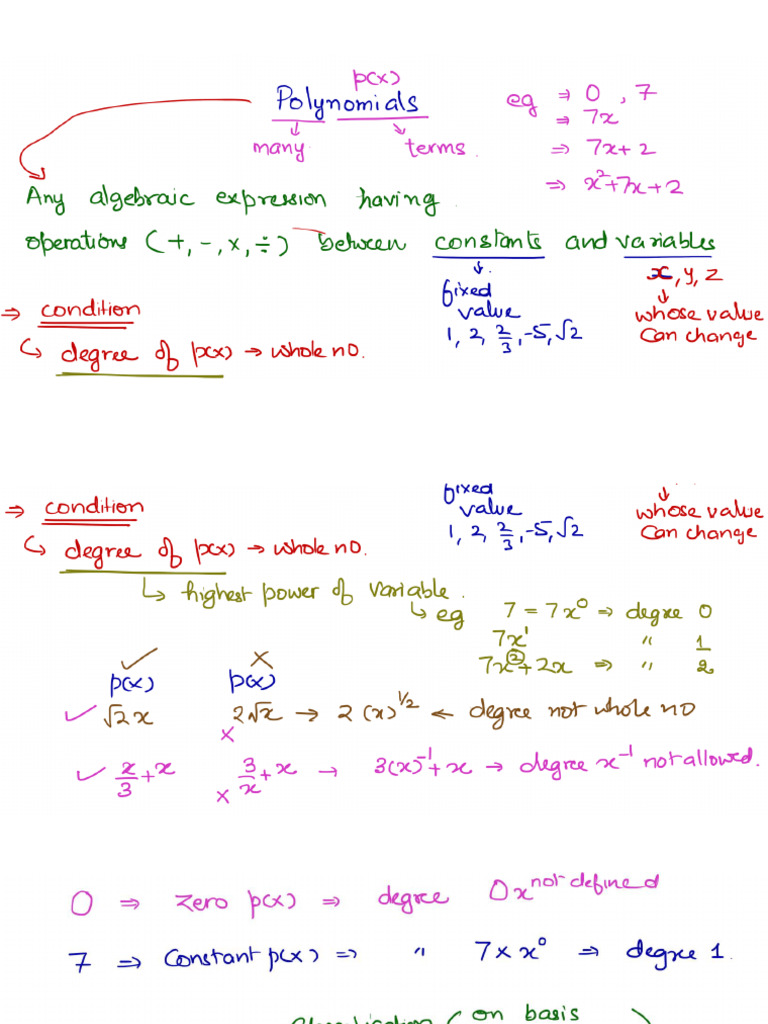 p(x)
Polynomials
many terms.
eg ⇒ 0, 7
⇒ 7x
⇒ 7x+2
⇒ x²+7x+2
Any algebraic expression having
operations (+, -, x, ÷) between constants and variables
fixed value
1, 2, 2/3, -5, √2
x, y, z
whose value
can change
⇒ condition
↳ degree of p(x) → whole no.
⇒ condition
↳ degree of p(x) → whole no.
fixed
value
1, 2, 2/3, -5, √2
whose value
can change
↳ highest power of variable.
↳ eg 7 = 7x⁰ ⇒ degree 0
7x¹ " 1
7x²+2x ⇒ " 2
✓ ×
p(x) p(x)
✓ √2x 2√x → 2(x)^1/2 ← degree not whole no
×
✓ x/3 + x × 3/x + x → 3(x)⁻¹+x → degree x⁻¹ not allowed.
0 ⇒ Zero p(x) ⇒ degree 0x^not defined
7 ⇒ Constant p(x) ⇒ " 7×x⁰ ⇒ degree 1.
(on basis )